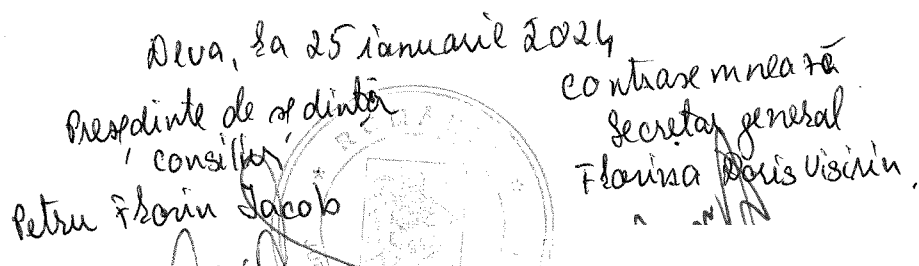 Deva, la 25 ianuarie 2024
Președinte de ședință
consilier,
Petru Florin Iacob
contrasemnează
Secretar general
Florina Doris Visirin
ROMÂN